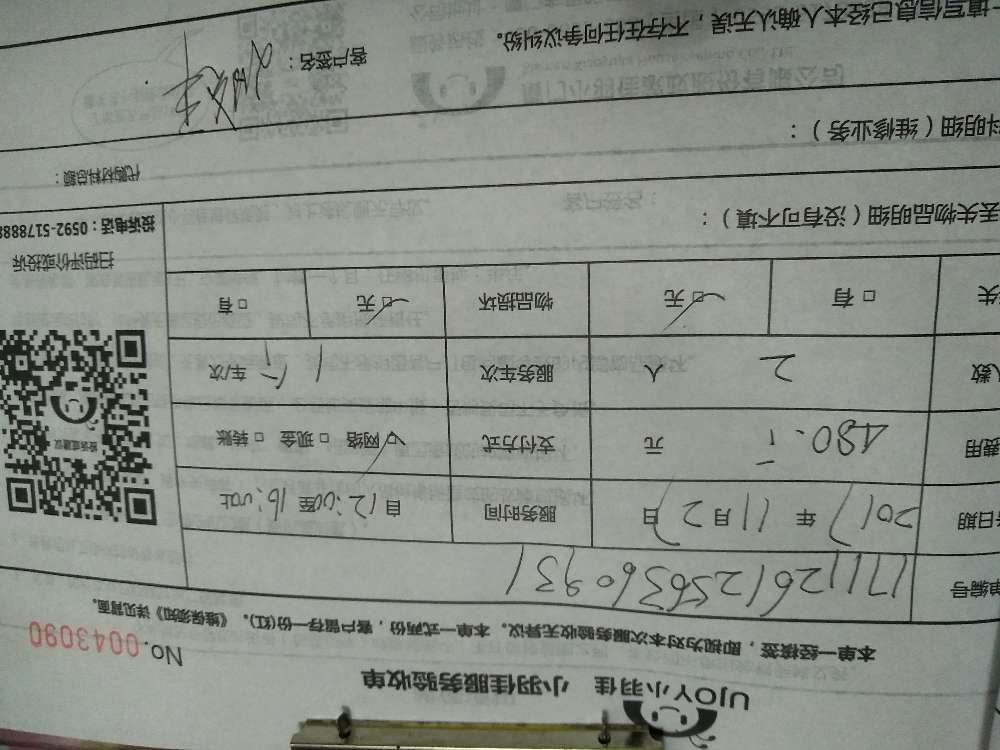 UJOY小羽佳 小羽佳服务验收单
No. 0043090
本单一经核签,即视为对本次服务验收无异议。本单一式两份,客户留存一份(红)。《维保须知》详见背面。
单编号 171126125636093 1
日期 2017年11月2 日 服务时间 自12:00至16:00止
费用 480.- 元 支付方式 网络 □现金 □转账
人数 2 人 服务车次 1 车/次
失 □有 □无 物品损坏 □无 □有
投诉建议
扫码评价或投诉
投诉电话:0592-5178888
丢失物品明细(没有可不填):
料明细(维修业务):
代购材料总额:
填写信息已经本人确认无误,不存在任何争议纠纷。
客户签名: